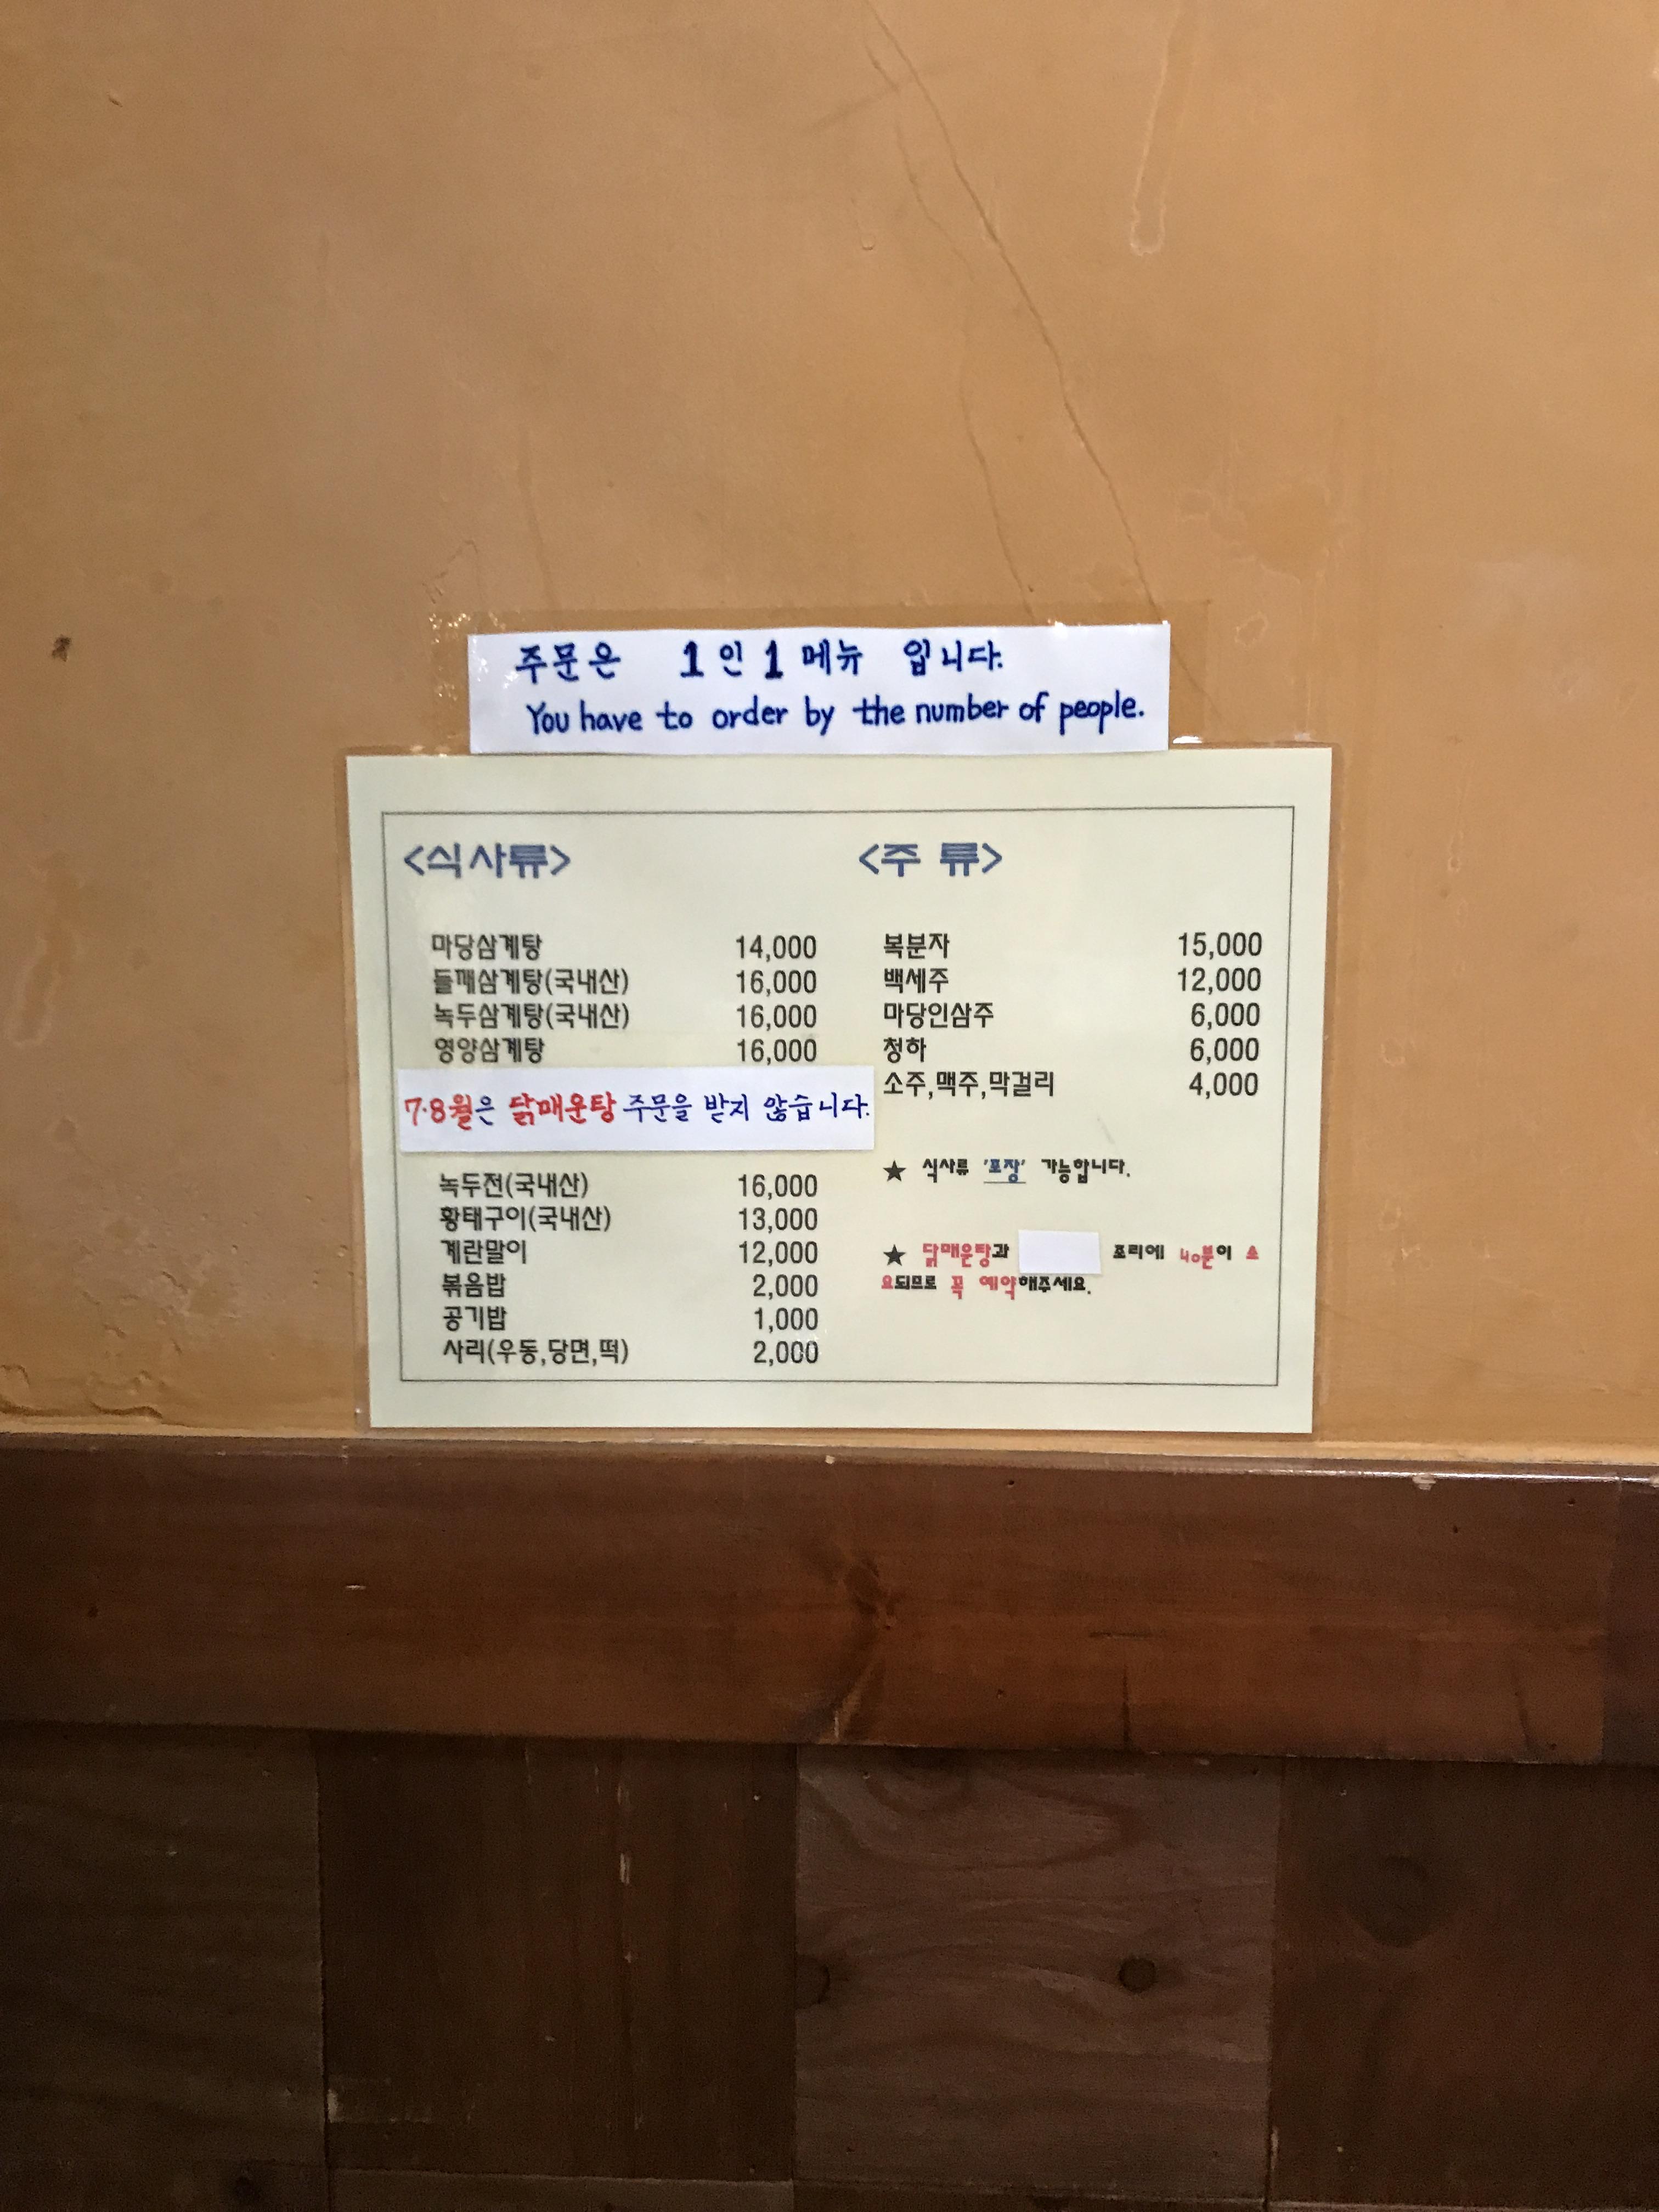 주문은 1인 1메뉴 입니다.
You have to order by the number of people.
<식사류>
마당삼계탕 14,000
들깨삼계탕(국내산) 16,000
녹두삼계탕(국내산) 16,000
영양삼계탕 16,000
7·8월은 닭매운탕 주문을 받지 않습니다.
녹두전(국내산) 16,000
황태구이(국내산) 13,000
계란말이 12,000
볶음밥 2,000
공기밥 1,000
사리(우동,당면,떡) 2,000
<주 류>
복분자 15,000
백세주 12,000
마당인삼주 6,000
청하 6,000
소주,맥주,막걸리 4,000
★ 식사류 '포장' 가능합니다.
★ 닭매운탕과 조리에 40분이 소
요되므로 꼭 예약해주세요.